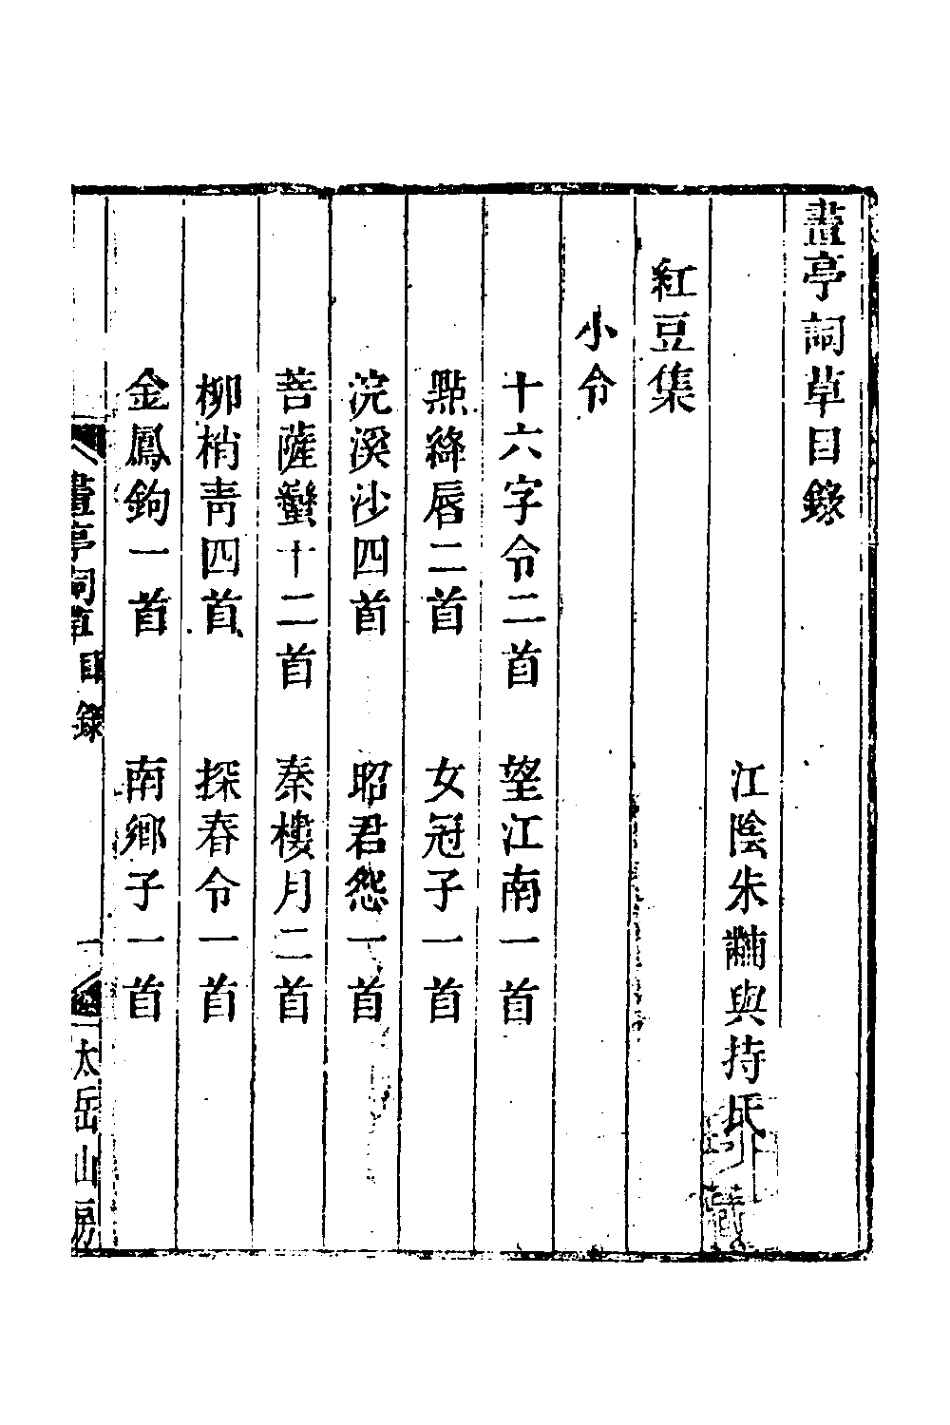 畫亭詞草目錄
江陰朱黼與持氏
紅豆集
小令
十六字令二首　望江南一首
點絳唇二首　女冠子一首
浣溪沙四首　昭君怨一首
菩薩蠻十二首　秦樓月二首
柳梢青四首　探春令一首
金鳳鉤一首　南鄉子一首
畫亭詞草　目錄　一　太岳山房